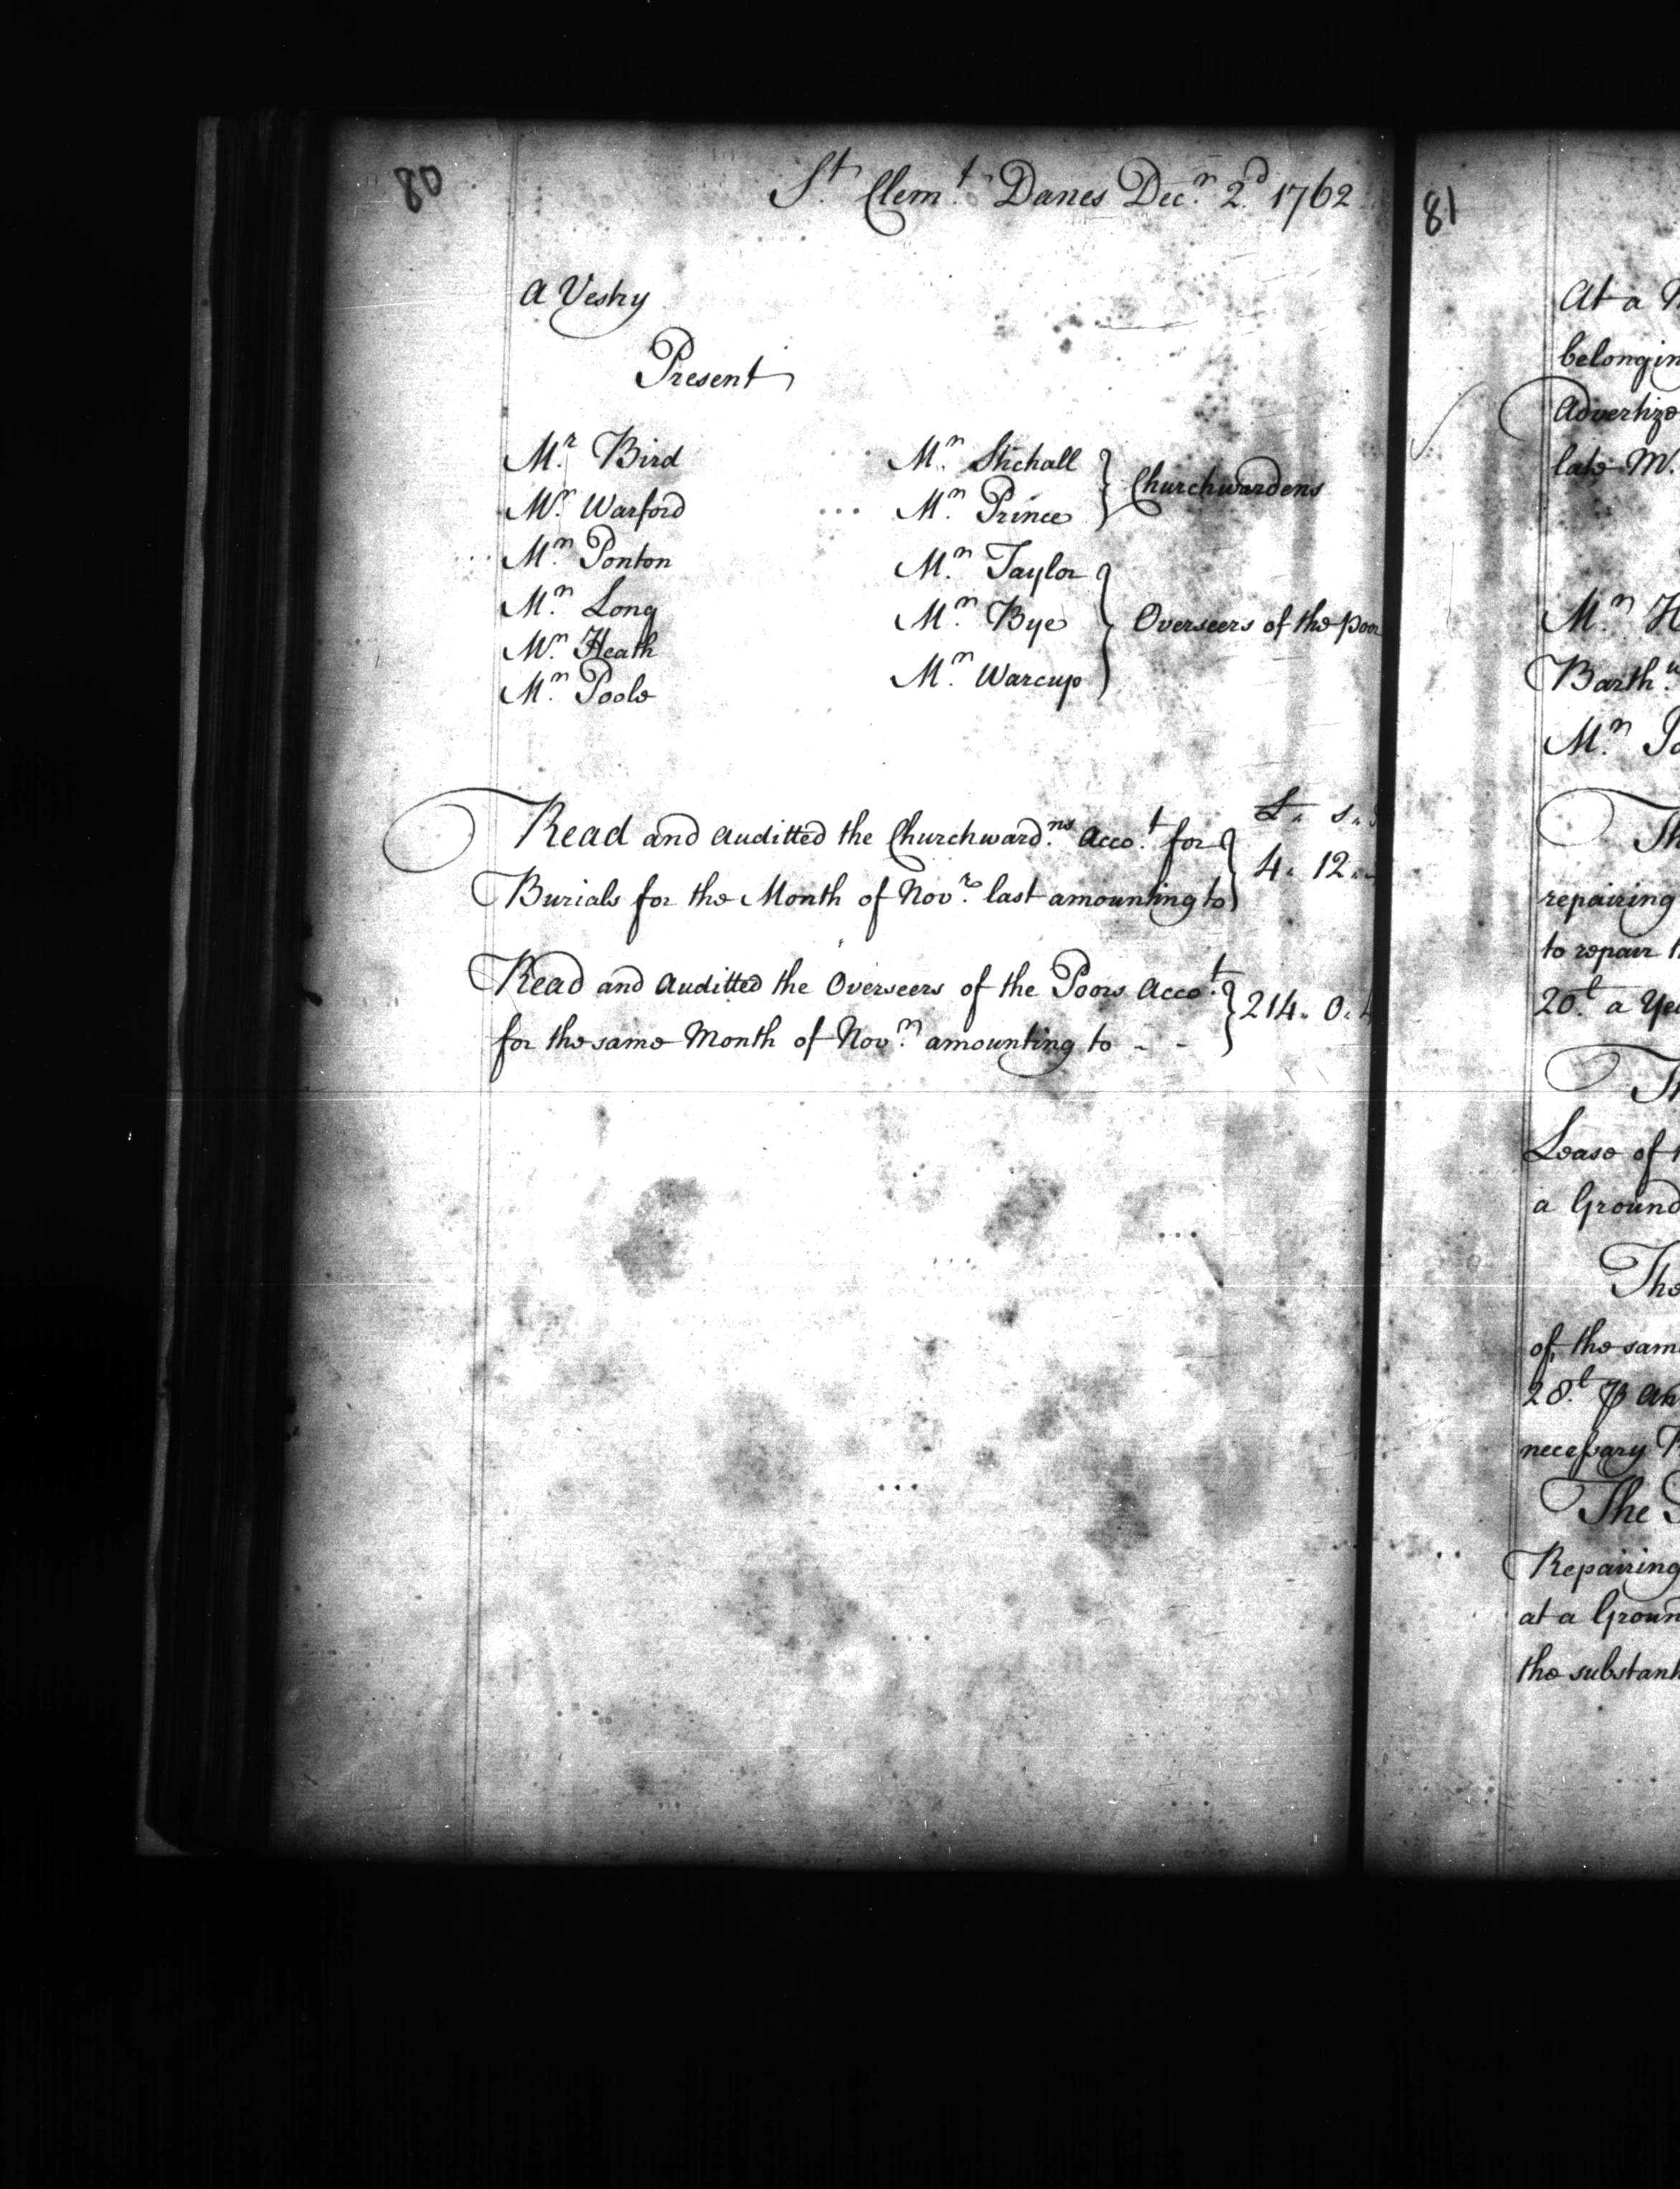 80
St. Clemt. Danes Decr. 2d. 1762
A Vestry
Present
Mr. Bird
Mr. Warford
Mr. Ponton
Mr. Long
Mr. Heath
Mr. Poole
Mr. Stichall
Mr. Prince
Churchwardens
Mr. Taylor
Mr. Bye
Mr. Warcup
Overseers of the poor
£. s.
Read and Auditted the Churchwardns. Acco.t for
Burials for the Month of Novr. last amounting to
4. 12.
Read and Auditted the Overseers of the Poors Acco.t
for the same Month of Novr. amounting to - -
214. 0.
81
At a
belongin
Advertize
late M.
Mr. H
Barthw.
Mr. Jo
Th
repairing
to repair
20l. a Yea
Th
Lease of
a Ground
The
of the same
28l. ⅌ An
necessary
The
Repairing
at a Groun
the substant